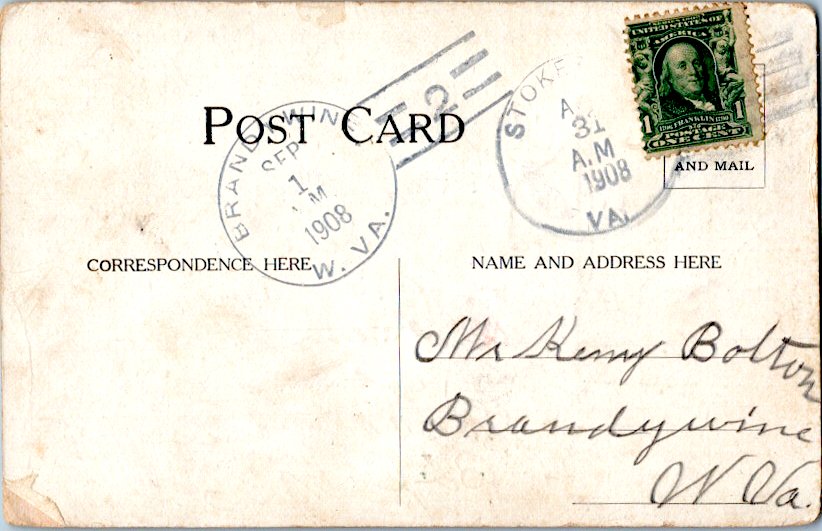 POST CARD
BRANDYWINE
SEP
1
M
1908
W. VA.
2
STOKE
A
31
A.M
1908
VA.
UNITED STATES OF
AMERICA
1 1
1706 FRANKLIN 1790
POSTAGE
ONE CENT
AND MAIL
CORRESPONDENCE HERE
NAME AND ADDRESS HERE
Mr Kenny Bolton
Brandywine
W Va.